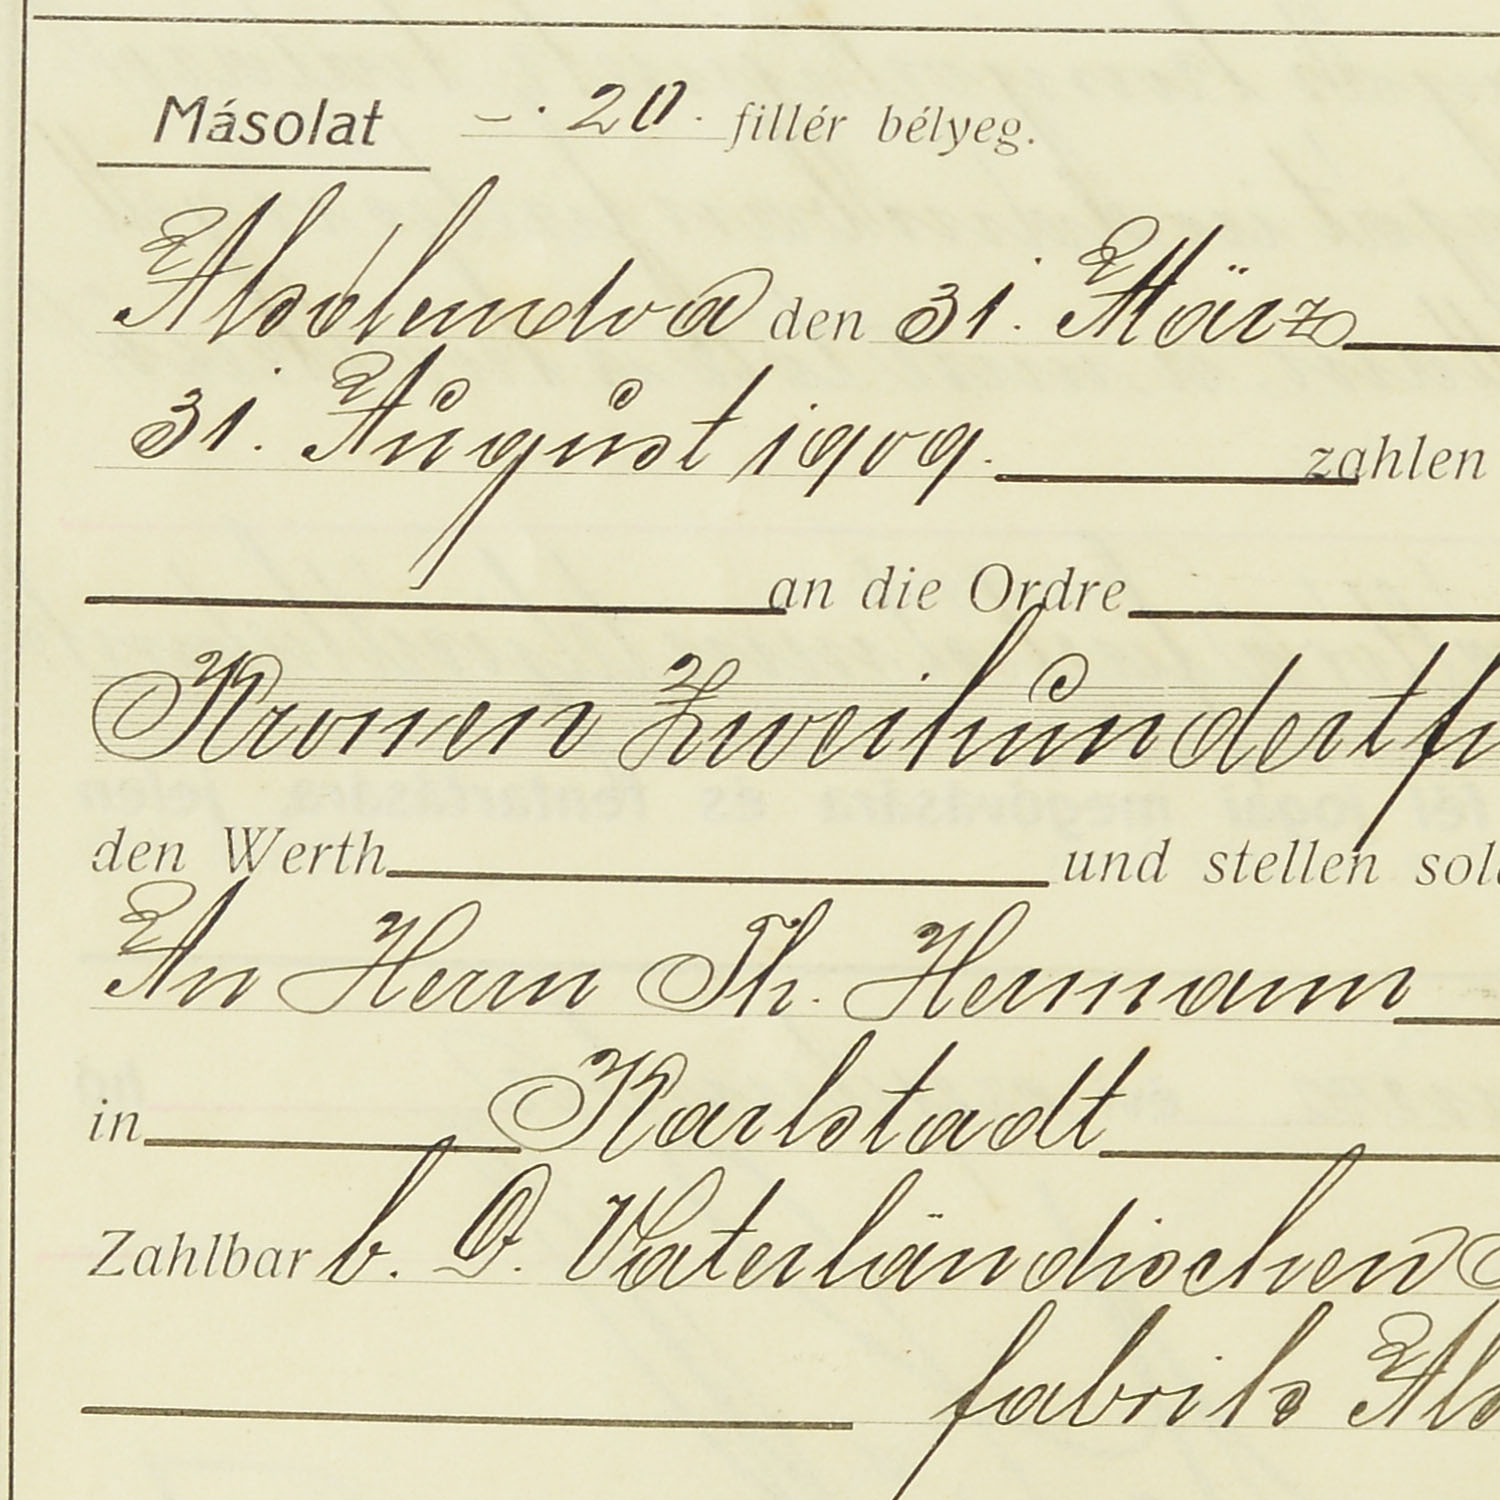 Másolat – · 20 · fillér bélyeg.
Alsólendva den 31. März
31. August 1909. zahlen
an die Ordre
Kronen Zweihundert
den Werth und stellen
An Herrn Th. Hermann
in Karlstadt
Zahlbar b. D. Vaterländischen
fabriks